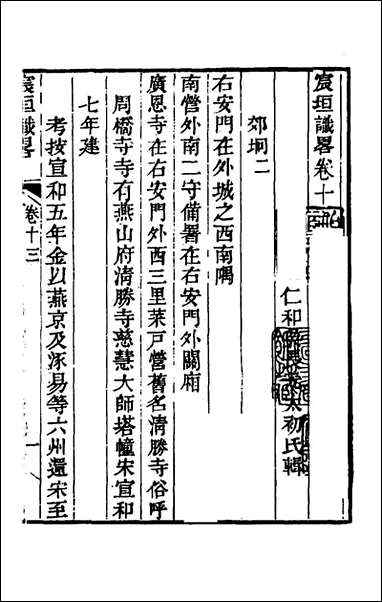 宸垣識畧卷十
仁和太初氏輯
郊坰二
右安門在外城之西南隅
南營外南二守備署在右安門外關廂
廣恩寺在右安門外西三里菜戸營舊名清勝寺俗呼
周橋寺寺有燕山府清勝寺慈慧大師塔幢宋宣和
七年建
考按宣和五年金以燕京及涿易等六州還宋至
宸垣識畧 卷十三 一